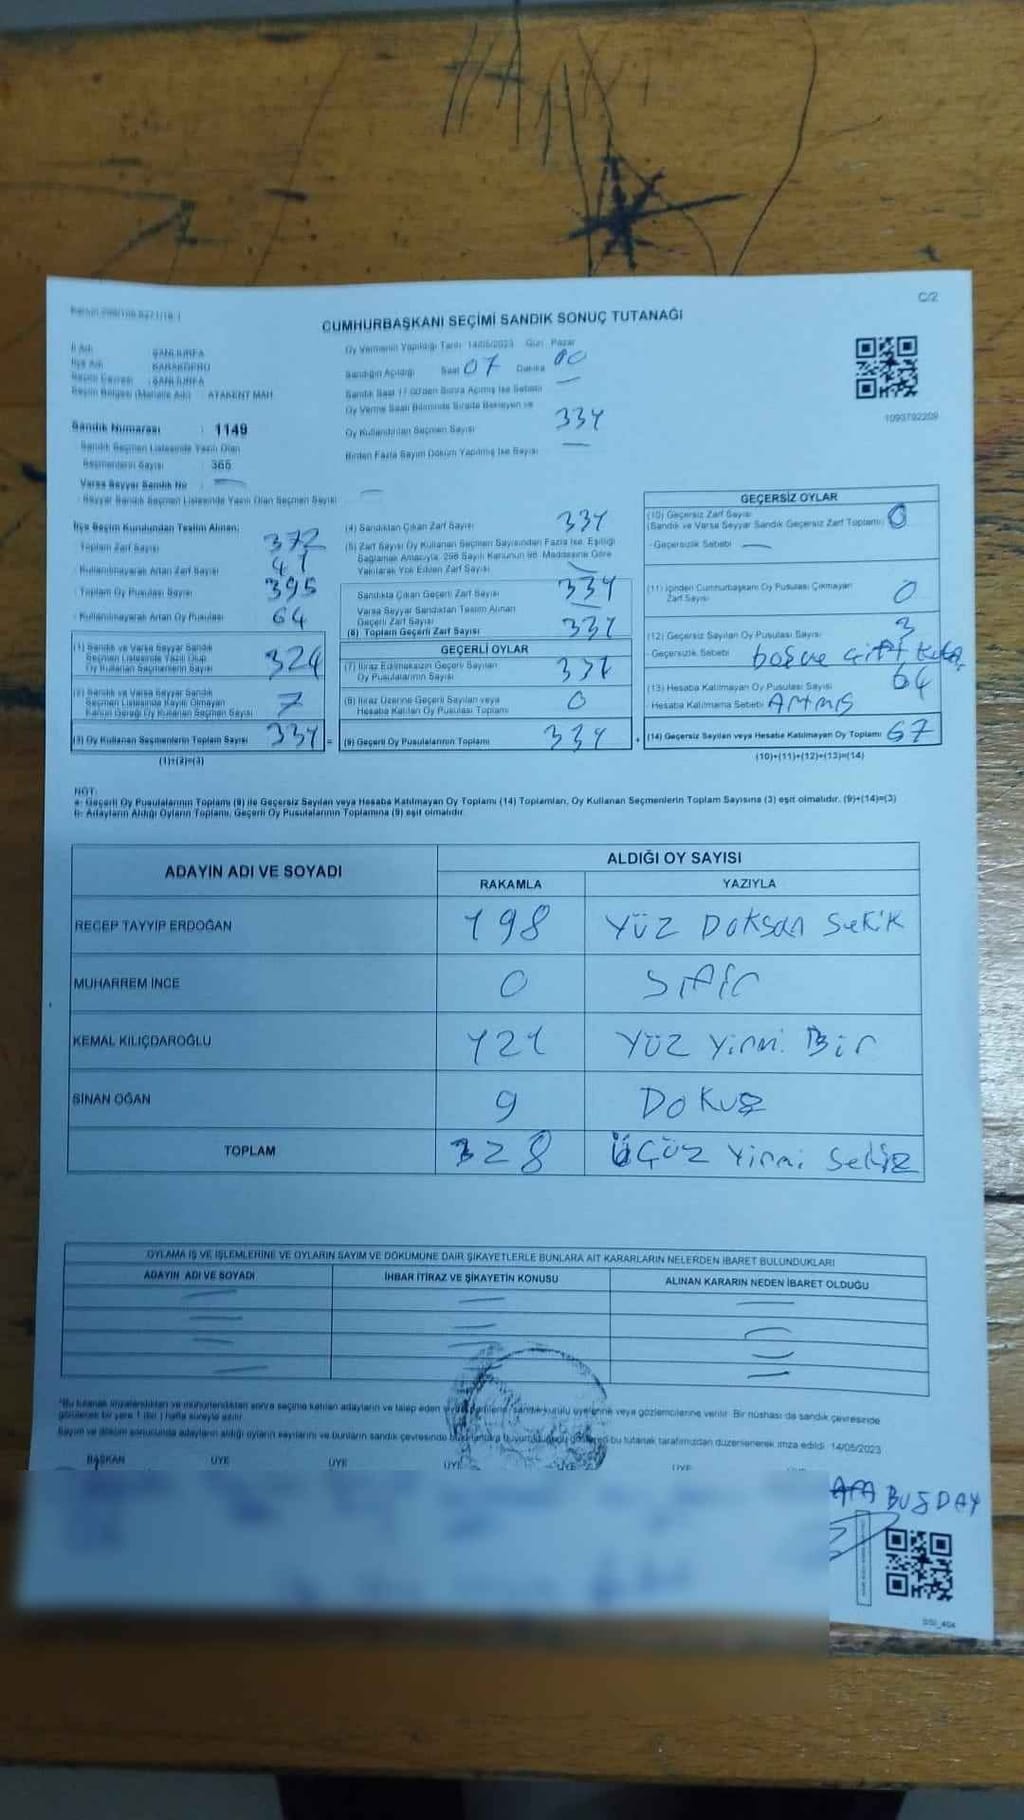 C/2
CUMHURBAŞKANI SEÇİMİ SANDIK SONUÇ TUTANAĞI
İl Adı : ŞANLIURFA
İlçe Adı : KARAKÖPRÜ
Seçim Çevresi : ŞANLIURFA
Seçim Bölgesi (Mahalle Adı) : ATAKENT MAH
Sandık Numarası : 1149
Sandık Seçmen Listesinde Yazılı Olan
Seçmenlerin Sayısı : 365
Varsa Seyyar Sandık No
Seyyar Sandık Seçmen Listesinde Yazılı Olan Seçmen Sayısı
Oy Vermenin Yapıldığı Tarih 14/05/2023 Gün Pazar
Sandığın Açıldığı Saat 07 Dakika 00
Sandık Saat 17.00'den Sonra Açılmış İse Sebebi
Oy Verme Saati Bitiminde Sırada Bekleyen ve
Oy Kullandırılan Seçmen Sayısı 331
Birden Fazla Sayım Döküm Yapılmış İse Sayısı
1093792209
İlçe Seçim Kurulundan Teslim Alınan;
Toplam Zarf Sayısı 372
Kullanılmayarak Artan Zarf Sayısı 41
Toplam Oy Pusulası Sayısı 395
Kullanılmayarak Artan Oy Pusulası 64
(1) Sandık ve Varsa Seyyar Sandık
Seçmen Listesinde Yazılı Olup
Oy Kullanan Seçmenlerin Sayısı 324
(2) Sandık ve Varsa Seyyar Sandık
Seçmen Listesinde Kayıtlı Olmayan
Kanun Gereği Oy Kullanan Seçmen Sayısı 7
(3) Oy Kullanan Seçmenlerin Toplam Sayısı 331 =
(1)+(2)=(3)
(4) Sandıktan Çıkan Zarf Sayısı 331
(5) Zarf Sayısı Oy Kullanan Seçmen Sayısından Fazla İse, Eşitliği
Sağlamak Amacıyla, 298 Sayılı Kanunun 98. Maddesine Göre
Yakılarak Yok Edilen Zarf Sayısı
Sandıkta Çıkan Geçerli Zarf Sayısı 331
Varsa Seyyar Sandıktan Teslim Alınan
Geçerli Zarf Sayısı
(6) Toplam Geçerli Zarf Sayısı 331
GEÇERLİ OYLAR
(7) İtiraz Edilmeksizin Geçerli Sayılan
Oy Pusulalarının Sayısı 331
(8) İtiraz Üzerine Geçerli Sayılan veya
Hesaba Katılan Oy Pusulası Toplamı 0
(9) Geçerli Oy Pusulalarının Toplamı 331 +
GEÇERSİZ OYLAR
(10) Geçersiz Zarf Sayısı
(Sandık ve Varsa Seyyar Sandık Geçersiz Zarf Toplamı) 0
Geçersizlik Sebebi
(11) İçinden Cumhurbaşkanı Oy Pusulası Çıkmayan
Zarf Sayısı 0
(12) Geçersiz Sayılan Oy Pusulası Sayısı 3
Geçersizlik Sebebi boş ve çift
(13) Hesaba Katılmayan Oy Pusulası Sayısı 64
Hesaba Katılmama Sebebi Artmış
(14) Geçersiz Sayılan veya Hesaba Katılmayan Oy Toplamı 67
(10)+(11)+(12)+(13)=(14)
NOT:
a- Geçerli Oy Pusulalarının Toplamı (9) ile Geçersiz Sayılan veya Hesaba Katılmayan Oy Toplamı (14) Toplamları, Oy Kullanan Seçmenlerin Toplam Sayısına (3) eşit olmalıdır. (9)+(14)=(3)
b- Adayların Aldığı Oyların Toplamı, Geçerli Oy Pusulalarının Toplamına (9) eşit olmalıdır.
ADAYIN ADI VE SOYADI
ALDIĞI OY SAYISI
RAKAMLA YAZIYLA
RECEP TAYYİP ERDOĞAN 198 YÜZ DOKSAN SEKİK
MUHARREM İNCE 0 SIFIR
KEMAL KILIÇDAROĞLU 121 YÜZ Yirmi Bir
SİNAN OĞAN 9 DOKUZ
TOPLAM 328 ÜÇÜZ Yirmi Sekiz
OYLAMA İŞ VE İŞLEMLERİNE VE OYLARIN SAYIM VE DÖKÜMÜNE DAİR ŞİKAYETLERLE BUNLARA AİT KARARLARIN NELERDEN İBARET BULUNDUKLARI
ADAYIN ADI VE SOYADI İHBAR İTİRAZ VE ŞİKAYETİN KONUSU ALINAN KARARIN NEDEN İBARET OLDUĞU
*Bu tutanak imzalandıktan ve mühürlendikten sonra seçime katılan adayların ve talep eden sandık kurulu üyelerine veya gözlemcilerine verilir. Bir nüshası da sandık çevresinde
görülecek bir yere 1 (bir) hafta süreyle asılır.
Sayım ve döküm sonucunda adayların aldığı oyların sayılarını ve bunların sandık çevresinde bu tutanak tarafımızdan düzenlenerek imza edildi. 14/05/2023
BAŞKAN ÜYE ÜYE ÜYE ÜYE ÜYE
BUĞDAY